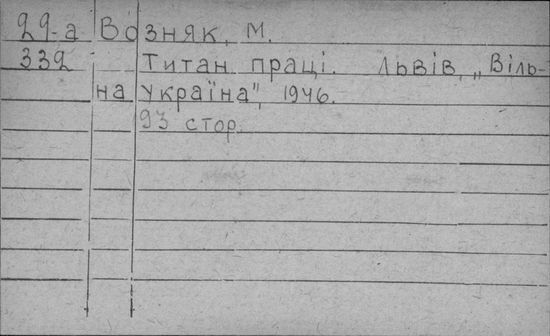 29-а Возняк, М.
332 Титан праці. Львів, „Віль-
на Україна", 1946.
93 стор.